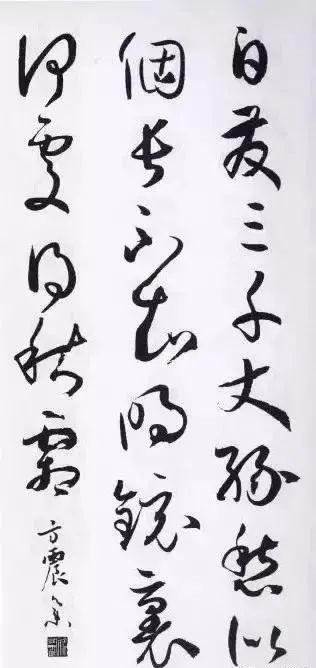 白发三千丈缘愁似
個长不知明镜裏
何处得秋霜
方震